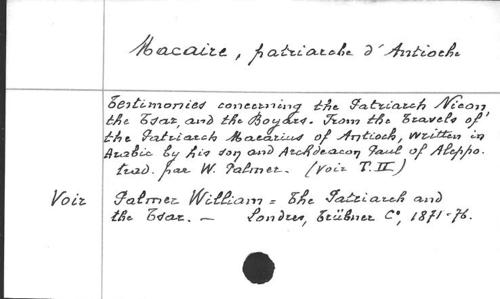 Macaire, patriarche d'Antioche
Testimonies concerning the Patriarch Nicon,
the Tsar, and the Boyars. From the travels of
the Patriarch Macarius of Antioch, written in
Arabic by his son and Archdeacon Paul of Aleppo.
trad. par W. Palmer. (Voir T. II)
Voir Palmer William = The Patriarch and
the Tsar. — Londres, Trübner Cº, 1871-76.